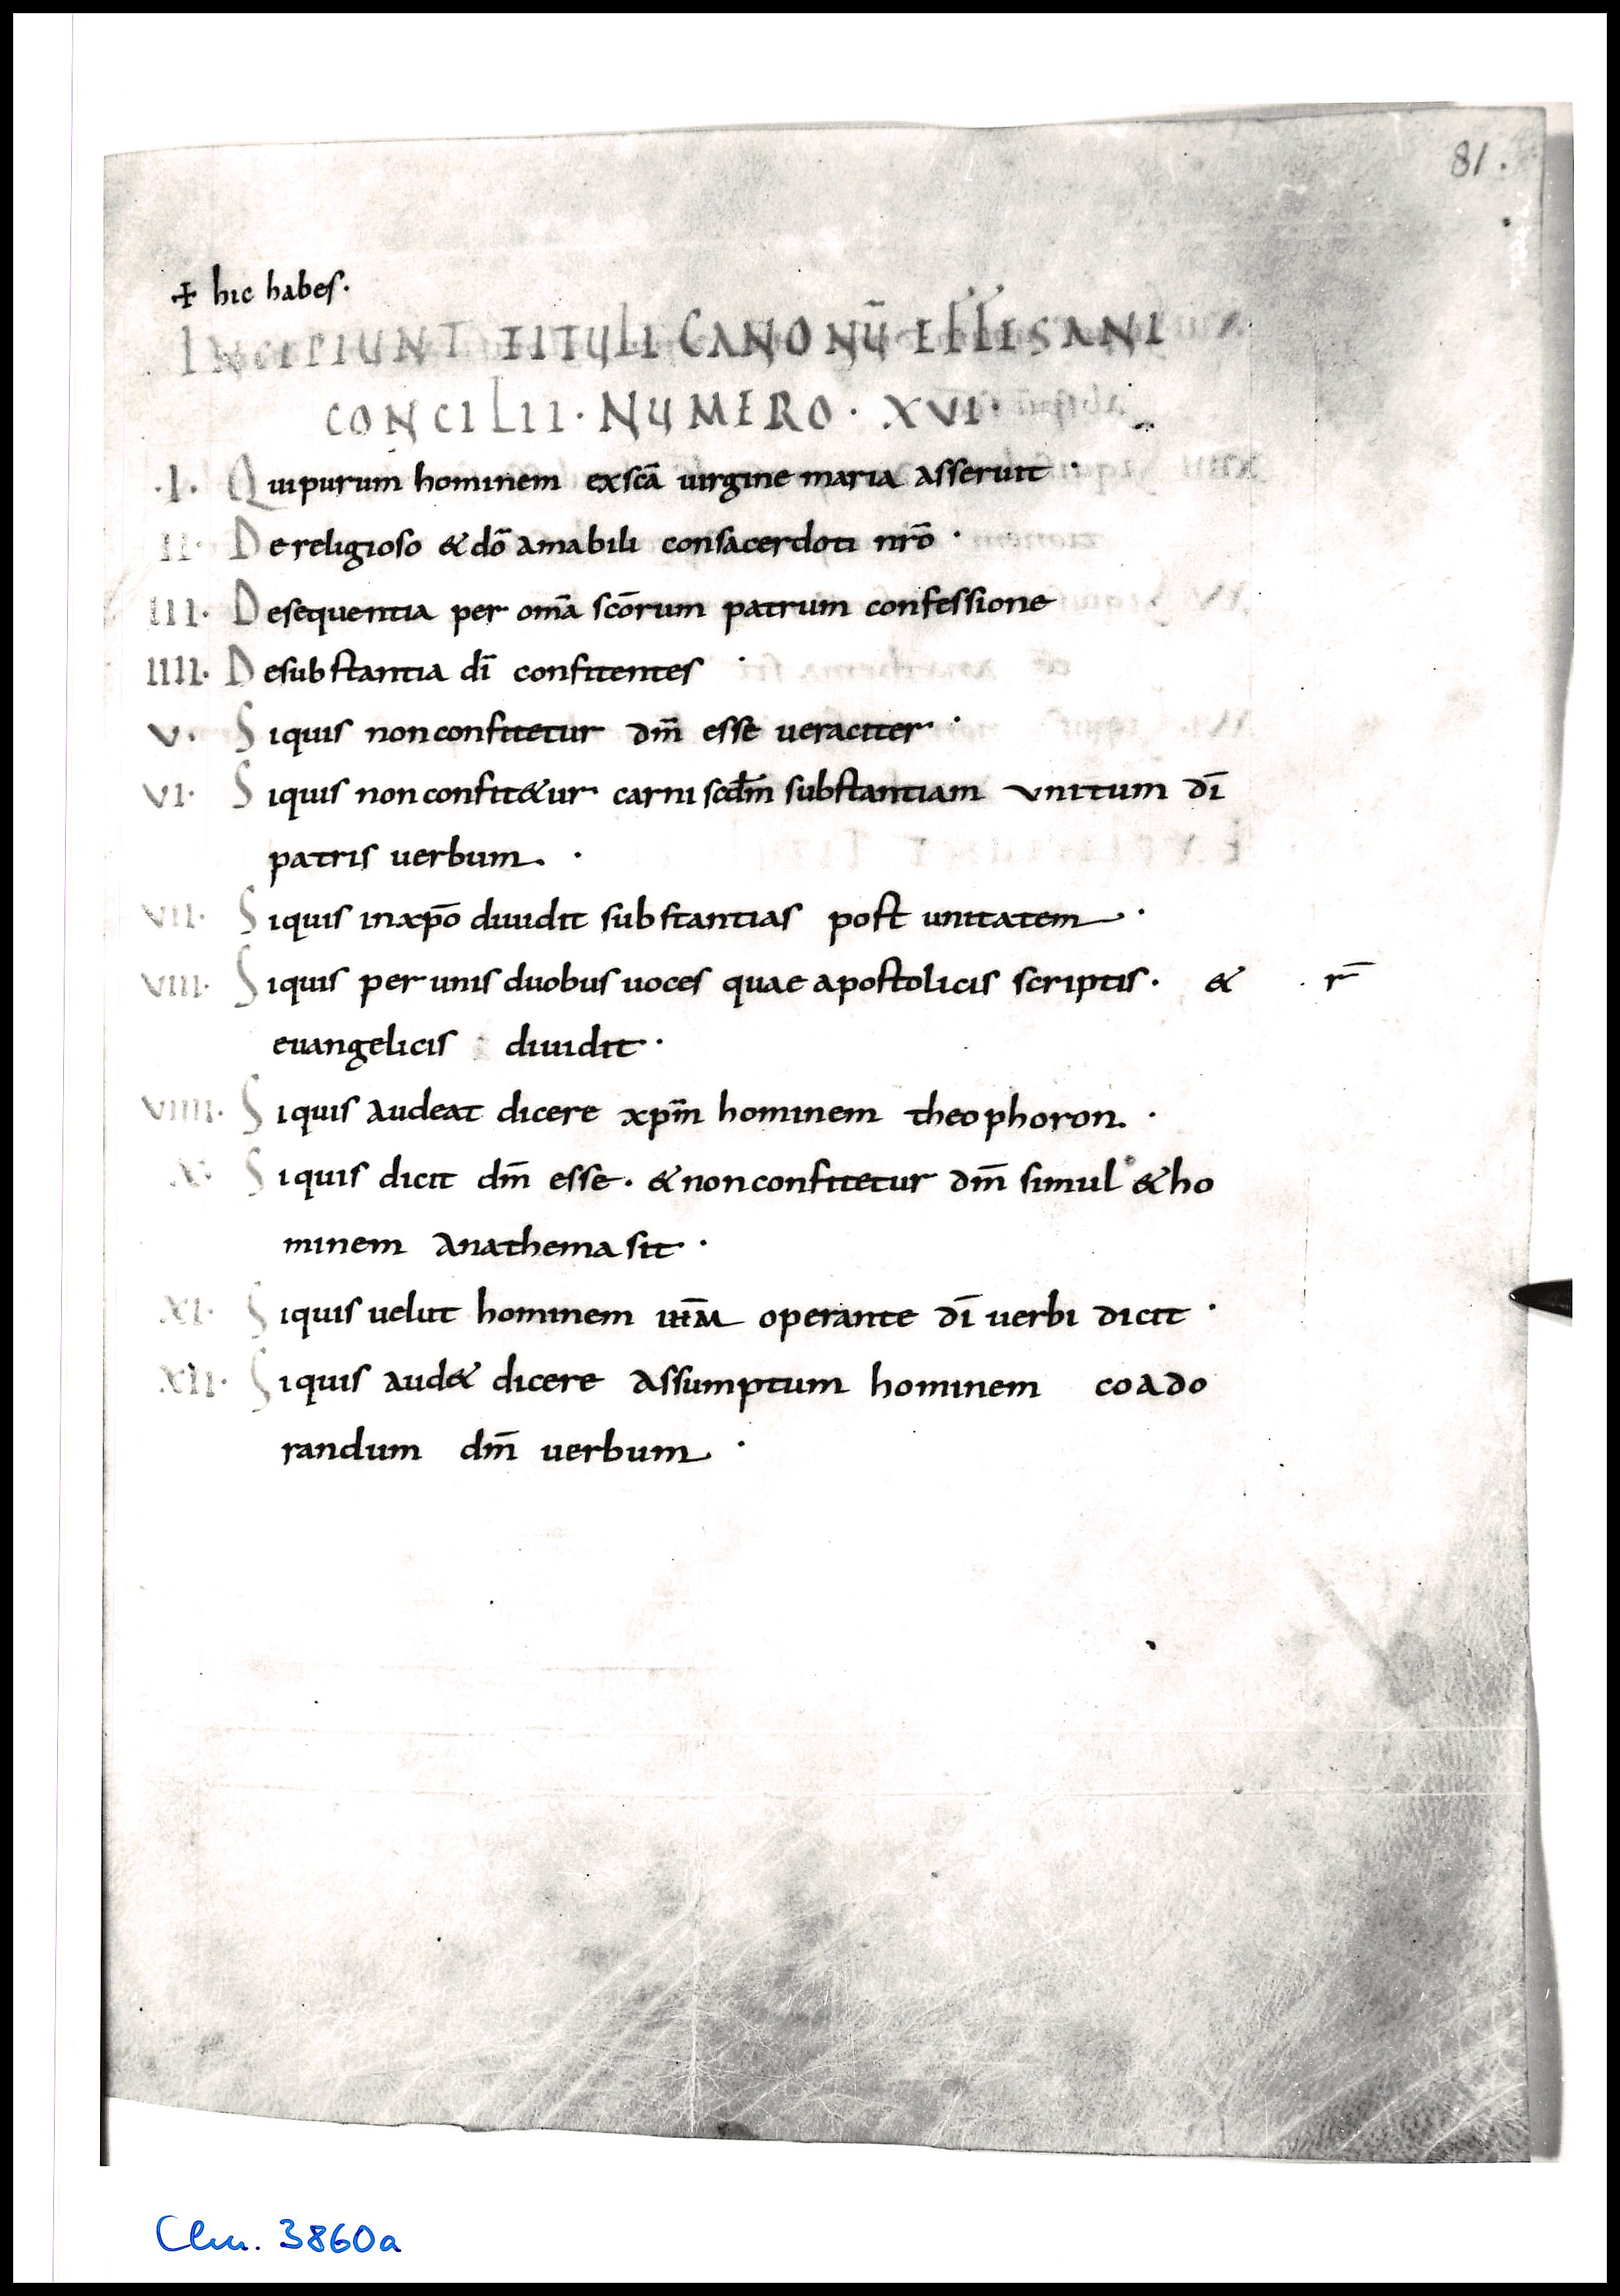 81.
+ hic habes.
INCIPIUNT TITULI CANONŪ EFFISANI
CONCILII · NUMERO · XVI·
·I· Quipurum hominem exscā uirgine maria asseruit ·
II· Dereligioso &dō amabili consacerdoti nrō ·
III· Desequentia per omā scōrum patrum confessione
IIII· Desubstantia dī confitentes ·
V· Siquis nonconfitetur dm̄ esse ueraciter ·
VI· Siquis nonconfit&ur carni scdm̄ substantiam unitum dī
patris uerbum. ·
VII· Siquis inxpō diuidit substantias post unitatem ·
VIII· Siquis per unis duobus uoces quae apostolicis scriptis · & r̄
euangelicis diuidit ·
VIIII· Siquis audeat dicere xpm̄ hominem theophoron. ·
X· Siquis dicit dm̄ esse · &nonconfitetur dm̄ simul &ho
minem anathema sit ·
XI· Siquis uelut hominem operante dī uerbi dicit ·
XII· Siquis aud& dicere assumptum hominem coado
randum dm̄ uerbum ·
Clm. 3860a